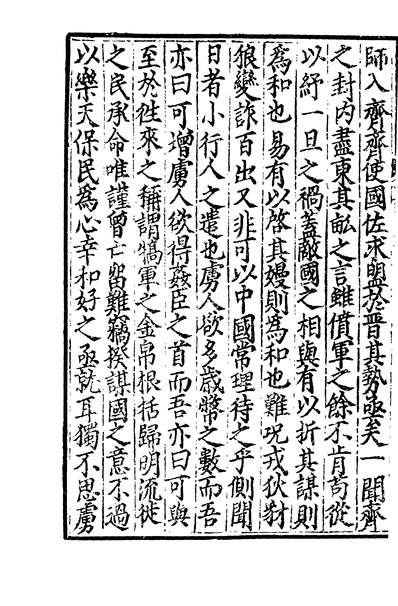 師入齊齊使國佐求盟於晉其勢亟矣一聞齊
之封内盡東其畝之言雖僨軍之餘不肯苟從
以紓一旦之禍蓋敵國之相與有以折其謀則
為和也易有以啓其嫚則為和也難况戎狄豺
狼變詐百出又非可以中國常理待之乎側聞
日者小行人之遣也虜人欲多歳幣之數而吾
亦曰可增虜人欲得姦臣之首而吾亦曰可與
至於往來之稱謂犒軍之金帛根括歸明流徙
之民承命唯謹曾亡留難竊揆謀國之意不過
以樂天保民為心幸和好之亟就耳獨不思虜